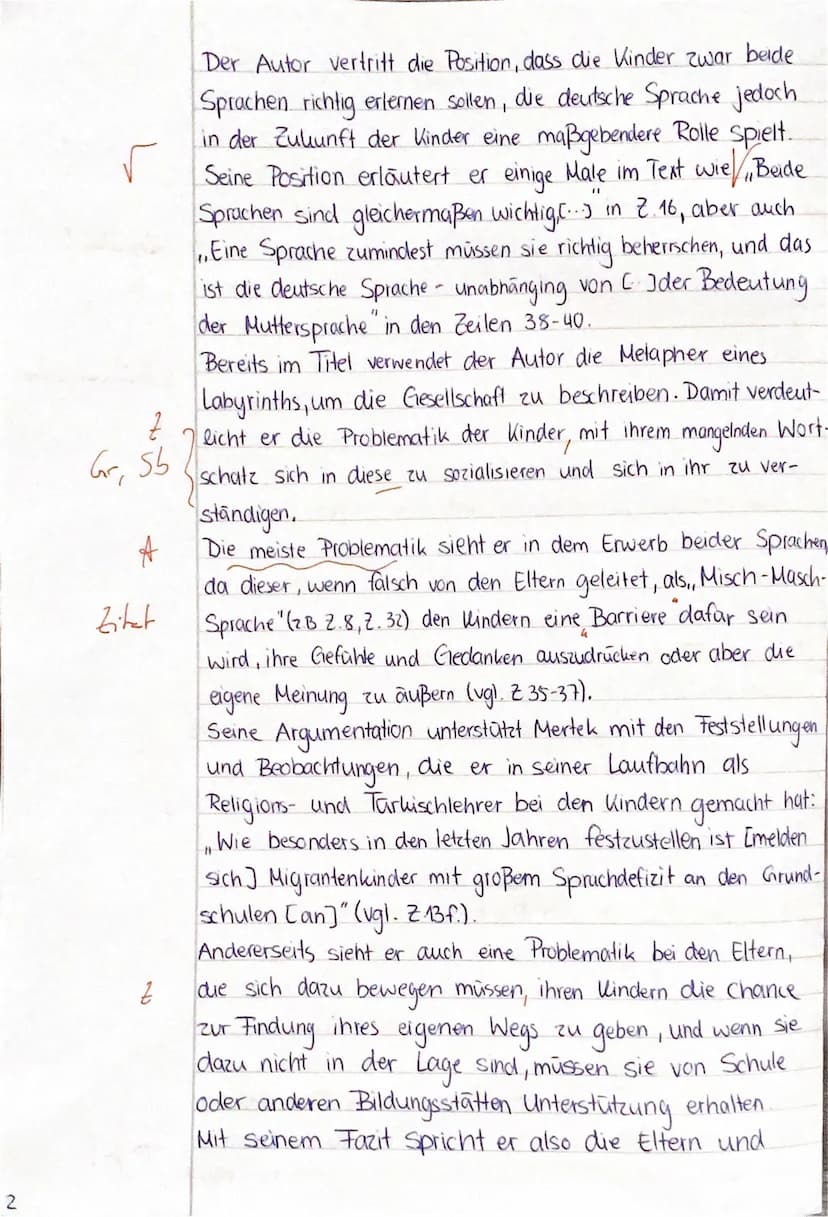 Der Autor vertritt die Position, dass die Kinder zwar beide
Sprachen richtig erlernen sollen, die deutsche Sprache jedoch
in der Zukunft der Kinder eine maßgebendere Rolle spielt.
√ Seine Position erläutert er einige Male im Text wie „Beide
Sprachen sind gleichermaßen wichtig[...]" in Z.16, aber auch
„Eine Sprache zumindest müssen sie richtig beherrschen, und das
ist die deutsche Sprache - unabhänging von [ ] der Bedeutung
der Muttersprache" in den Zeilen 38-40.
Bereits im Titel verwendet der Autor die Metapher eines
Labyrinths, um die Gesellschaft zu beschreiben. Damit verdeut-
Z licht er die Problematik der Kinder, mit ihrem mangelnden Wort-
Gr, Sb schatz sich in diese zu sozialisieren und sich in ihr zu ver-
ständigen.
A Die meiste Problematik sieht er in dem Erwerb beider Sprachen,
da dieser, wenn falsch von den Eltern geleitet, als „Misch-Masch-
Zitat Sprache" (zB Z.8, Z.32) den Kindern eine "Barriere" dafür sein
wird, ihre Gefühle und Gedanken auszudrücken oder aber die
eigene Meinung zu äußern (vgl. Z 35-37).
Seine Argumentation unterstützt Mertek mit den Feststellungen
und Beobachtungen, die er in seiner Laufbahn als
Religions- und Türkischlehrer bei den Kindern gemacht hat:
„Wie besonders in den letzten Jahren festzustellen ist [melden
sich] Migrantenkinder mit großem Sprachdefizit an den Grund-
schulen [an]" (vgl. Z 13f.).
Andererseits sieht er auch eine Problematik bei den Eltern,
Z die sich dazu bewegen müssen, ihren Kindern die Chance
zur Findung ihres eigenen Wegs zu geben, und wenn sie
dazu nicht in der Lage sind, müssen sie von Schule
oder anderen Bildungsstätten Unterstützung erhalten.
Mit seinem Fazit spricht er also die Eltern und
2